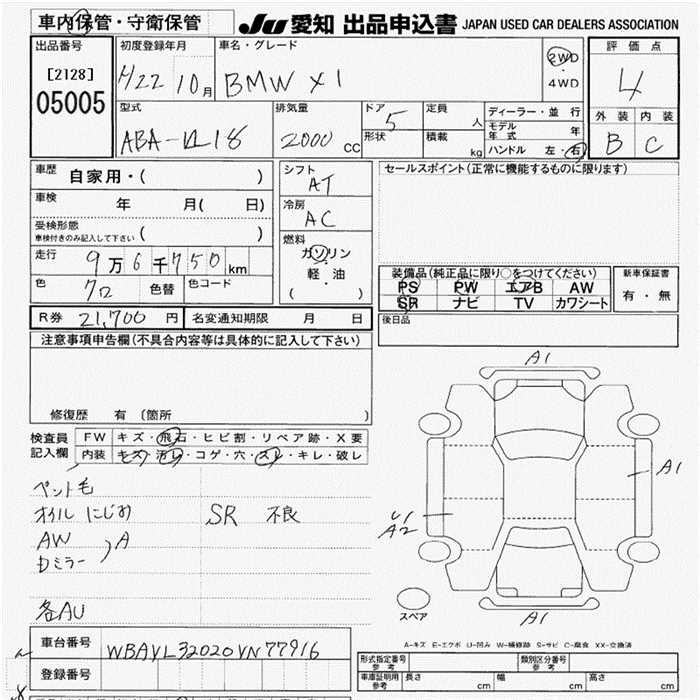 車内保管・守衛保管
JU 愛知 出品申込書 JAPAN USED CAR DEALERS ASSOCIATION
出品番号
[2128]
05005
初度登録年月
H22 10月
車名・グレード
BMW X1
2WD
・
4WD
評価点
4
外装 内装
B C
型式
ABA-VL18
排気量
2000 CC
ドア
5
形状
定員
人
積載
kg
ディーラー・並行
モデル年式 年
ハンドル 左・右
車歴
自家用・( )
車検
年 月( 日)
受検形態
車検付きのみ記入して下さい ( )
走行
9万6千750km
色
クロ
色替
色コード
シフト
AT
冷房
AC
燃料
ガソリン
・
軽・油
( )
セールスポイント(正常に機能するものに限ります)
装備品(純正品に限り○をつけてください)
PS PW エアB AW
SR ナビ TV カワシート
新車保証書
有・無
R券 21,700 円
名変通知期限 月 日
後日品
注意事項申告欄(不具合内容等は具体的に記入して下さい)
修復歴 有 (箇所 )
検査員
記入欄
FW キズ・飛石・ヒビ割・リペア跡・X要
内装 キズ・汚レ・コゲ・穴・スレ・キレ・破レ
ペント毛
オイルにじみ
SR 不良
AW
Dミラー
) A
各AU
A1
A1
U1
A2
A1
スペア
A-キズ E-エクボ U-凹み W-補修跡 S-サビ C-腐食 XX-交換済
車台番号
WBAVL32020VN77916
登録番号
形式指定番号
参考
類別区分番号
参考
車庫証明用
参考
長さ cm
幅 cm
高さ cm